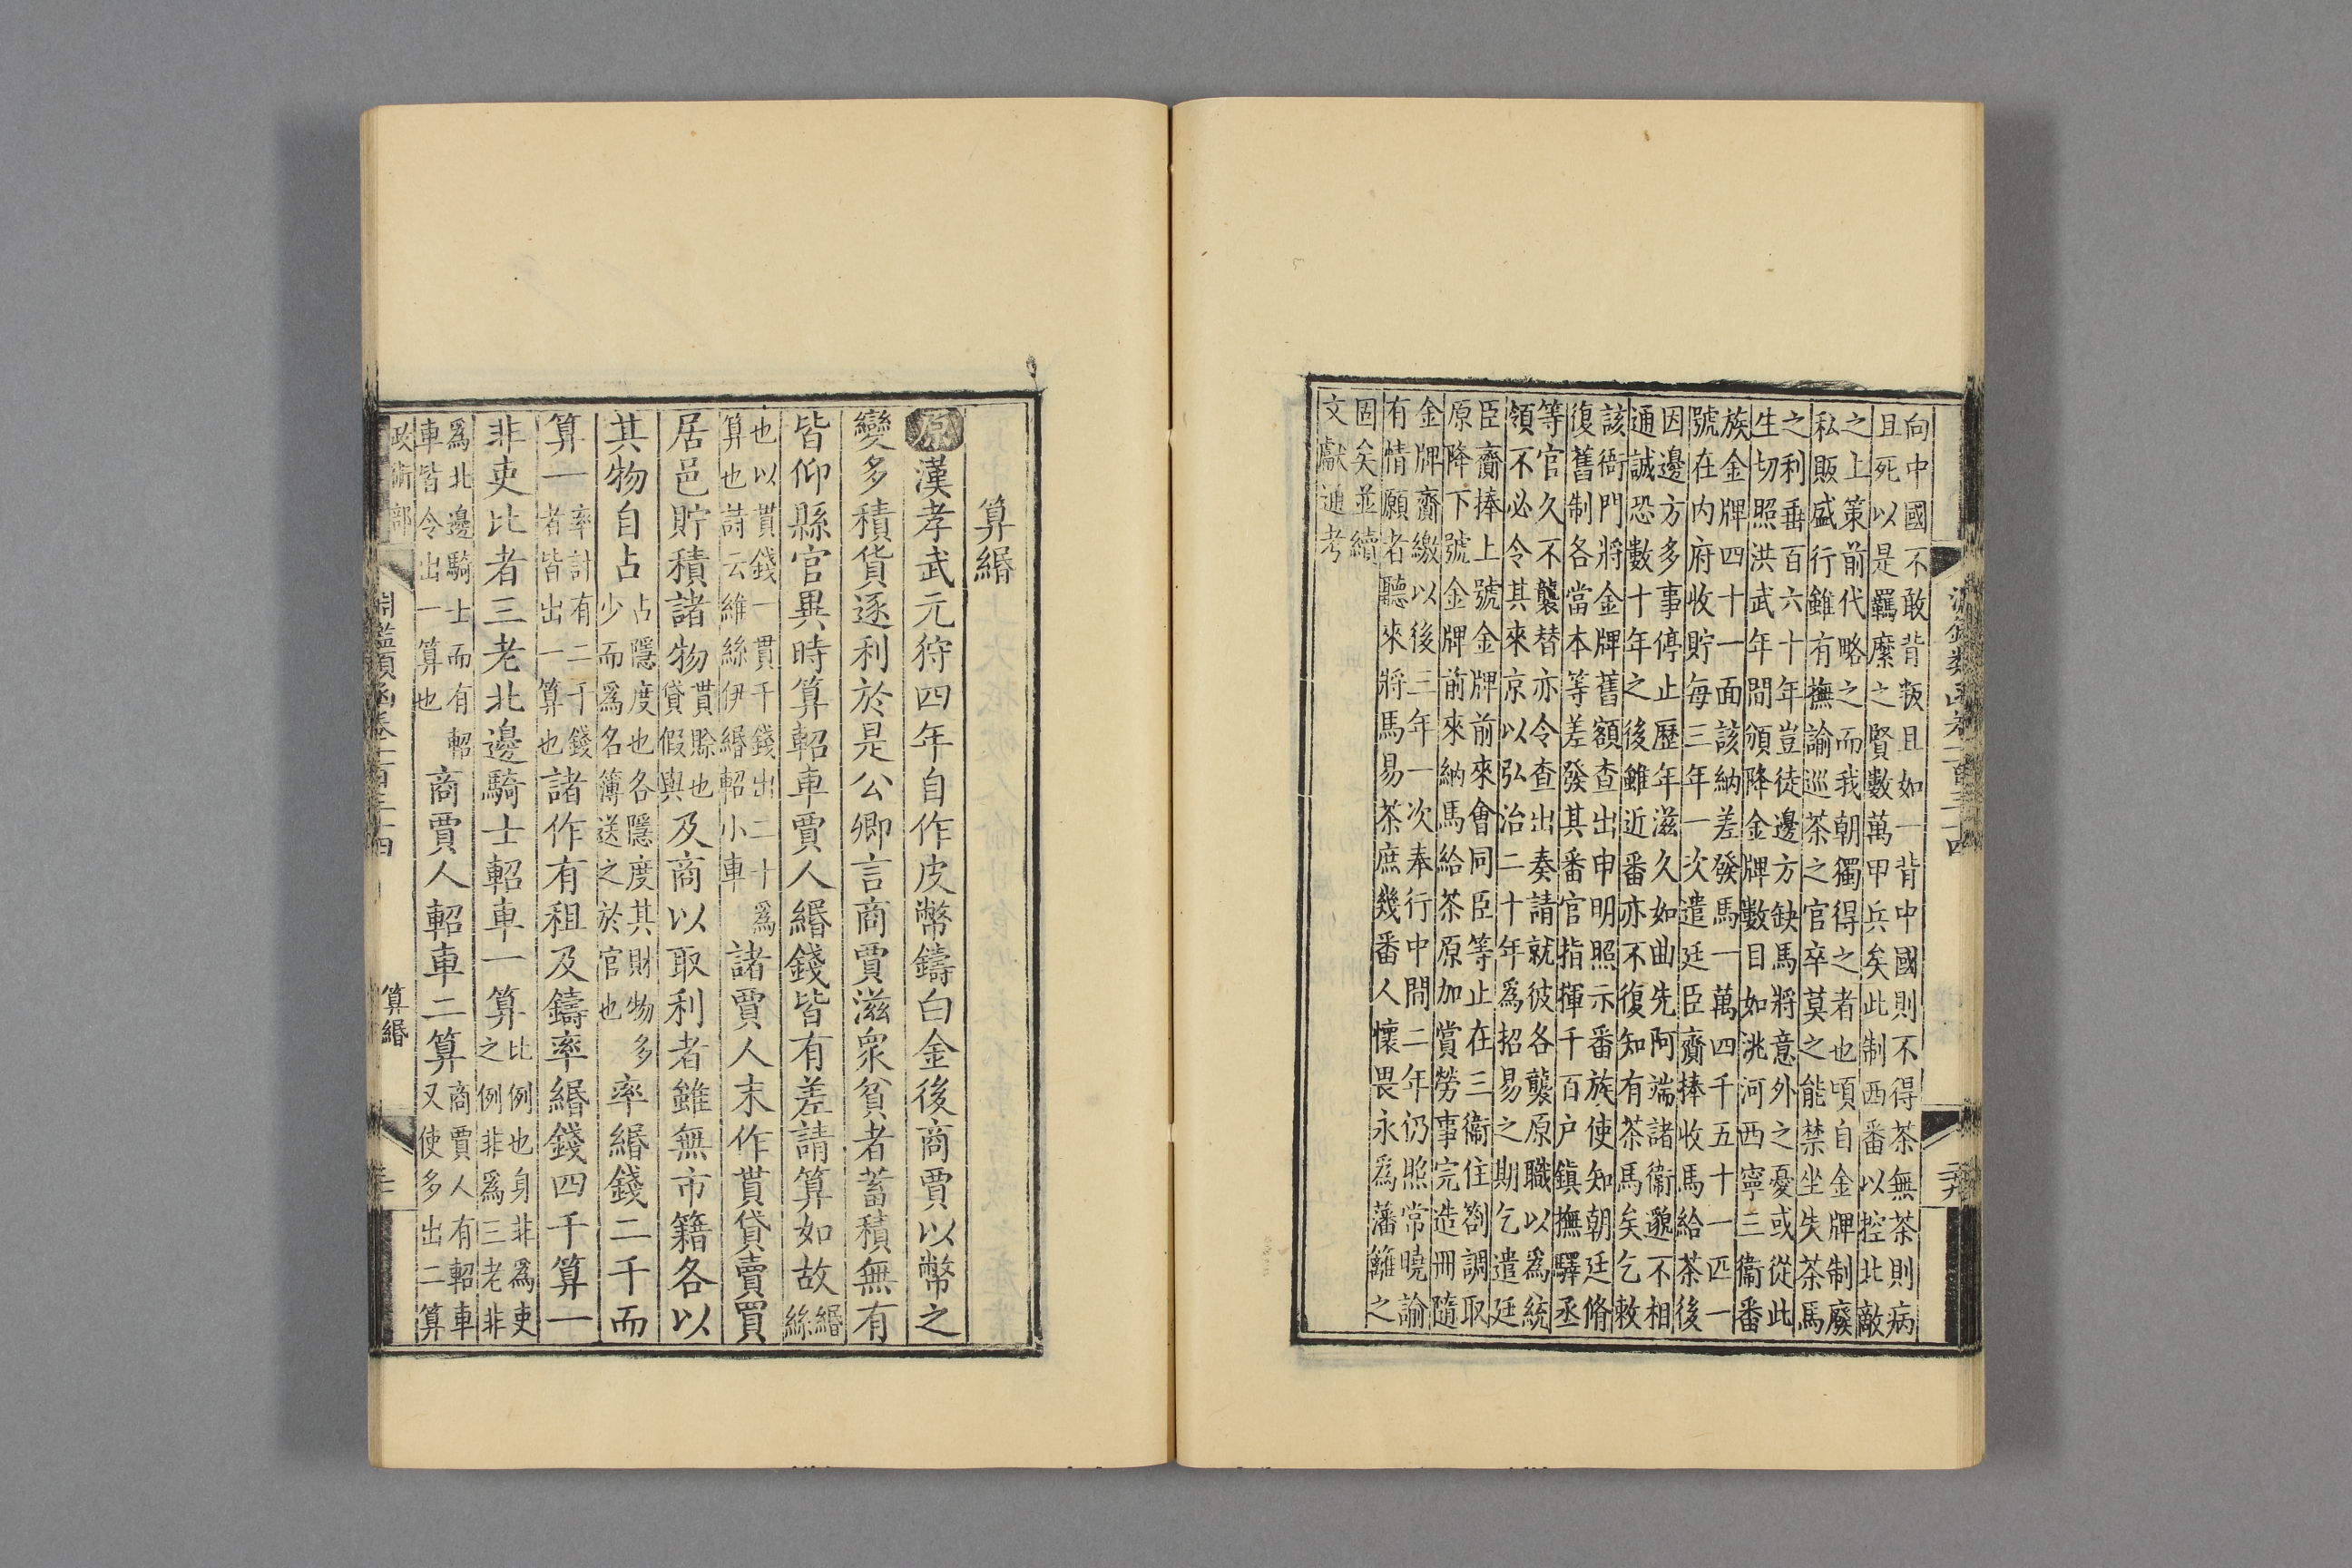 淵鑑類函卷一百三十四
向中國不敢背叛且如一背中國則不得茶無茶則病
且死以是羈縻之賢數萬甲兵矣此制西番以控北敵
之上策前代略之而我朝獨得之者也頃自金牌制廢
私販盛行雖有撫諭巡茶之官卒莫之能禁坐失茶馬
之利垂百六十年豈徒邊方缺馬將意外之憂或從此
生切照洪武年間頒降金牌數目如洮河西寧三衞番
族金牌四十一面該納差發馬一萬四千五十一匹一
號在内府收貯每三年一次遣廷臣齎捧收馬給茶後
因邊方多事停止歷年滋久如曲先阿端諸衞邈不相
通誠恐數十年之後雖近番亦不復知有茶馬矣乞敕
該衙門將金牌舊額查出申明照示番族使知朝廷脩
復舊制各當本等差發其番官指揮千百户鎮撫驛丞
等官久不襲替亦令查出奏請就彼各襲原職以爲統
領不必令其來京以弘治二十年爲招易之期乞遣廷
臣齎捧上號金牌前來會同臣等止在三衞住劄調取
原降下號金牌前來納馬給茶原加賞勞事完造冊隨
金牌齎繳以後三年一次奉行中間二年仍照常曉諭
有情願者聽來將馬易茶庶幾番人懷畏永爲藩籬之
固矣並續
文獻通考
算緡
原漢孝武元狩四年自作皮幣鑄白金後商賈以幣之
變多積貨逐利於是公卿言商賈滋衆貧者蓄積無有
皆仰縣官異時算軺車賈人緡錢皆有差請算如故緡絲
也以貫錢一貫千錢出二十爲算也詩云維絲伊緡軺小車諸賈人末作貰貸賣買
居邑貯積諸物貰賒也貸假與及商以取利者雖無市籍各以
其物自占占隱度也各隱度其財物多少而爲名簿送之於官也率緡錢二千而
算一率計有二千錢者皆出一算也諸作有租及鑄率緡錢四千算一
非吏比者三老北邊騎士軺車一算比例也身非爲吏之例非爲三老非
爲北邊騎士而有軺車皆令出一算也商賈人軺車二算商賈人有軺車又使多出二算
政術部 淵鑑類函卷一百三十四 算緡